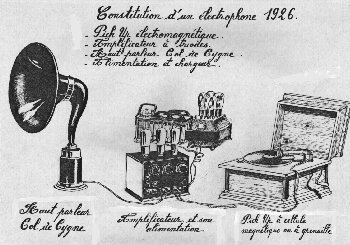 Constitution d'un électrophone 1926.
- Pick Up électromagnétique.
- Amplificateur à triodes.
- Haut parleur Col de Cygne.
- Alimentation et chargeur.
Haut parleur
Col de Cygne
Amplificateur et son
alimentation.
Pick Up à cellule
magnétique ou à grenaille